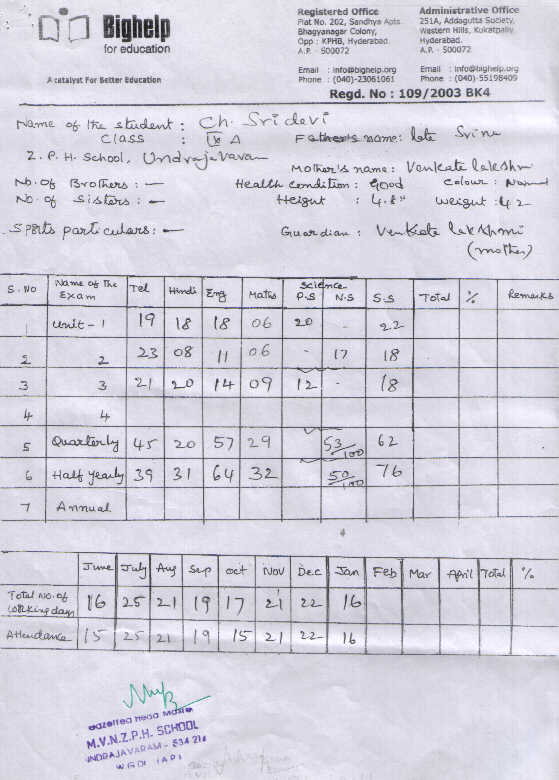 Bighelp
for education
A catalyst For Better Education
Registered Office
Flat No. 202, Sandhya Apts.
Bhagyanagar Colony,
Opp : KPHB, Hyderabad.
A.P. - 500072
Email : info@bighelp.org
Phone : (040)-23061061
Administrative Office
251A, Addagutta Society,
Western Hills, Kukatpally,
Hyderabad.
A.P. - 500072
Email : info@bighelp.org
Phone : (040)-55198409
Regd. No : 109/2003 BK4
Name of the student : Ch. Sridevi
Class : IX A Father's name: late Srinu
Z. P. H. School, Undrajavaram
Mother's name : Venkata lakshmi
No. of Brothers : — Health Condition : good Colour : Normal
No. of Sisters : — Height : 4.8" weight : 42
Sports particulars : — Guardian : Venkata lakshmi
(mother)
S. No Name of the Exam Tel Hindi Eng Maths Science P.S N.S S.S Total % Remarks
1 Unit - 1 19 18 18 06 20 - 22
2 2 23 08 11 06 - 17 18
3 3 21 20 14 09 12 - 18
4 4
5 Quarterly 45 20 57 29 53/100 62
6 Half yearly 39 31 64 32 50/100 76
7 Annual
June July Aug Sep Oct Nov Dec Jan Feb Mar April Total %
Total No. of working days 16 25 21 19 17 21 22 16
Attendance 15 25 21 19 15 21 22 16
Gazetted Head Master
M.V.N.Z.P.H. SCHOOL
UNDRAJAVARAM - 534 216
W.G.Dt. (A.P.)